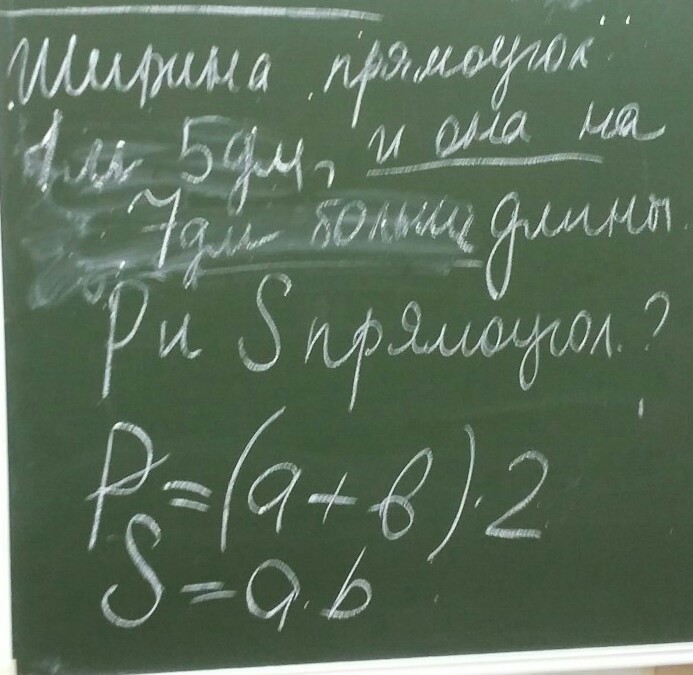 Ширина прямоугол
для 5дм, и она на
7дм больше длины
P и S прямоугол.?
P=(a+в)·2
S=a·b